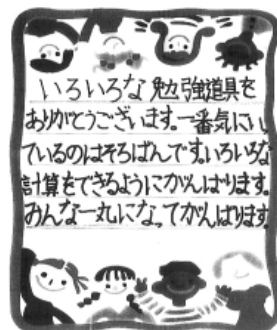 いろいろな勉強道具を
ありがとうございます。一番気にい
ているのはそろばんです。いろいろな
計算をできるようにがんばります。
みんな一丸になってがんばります。